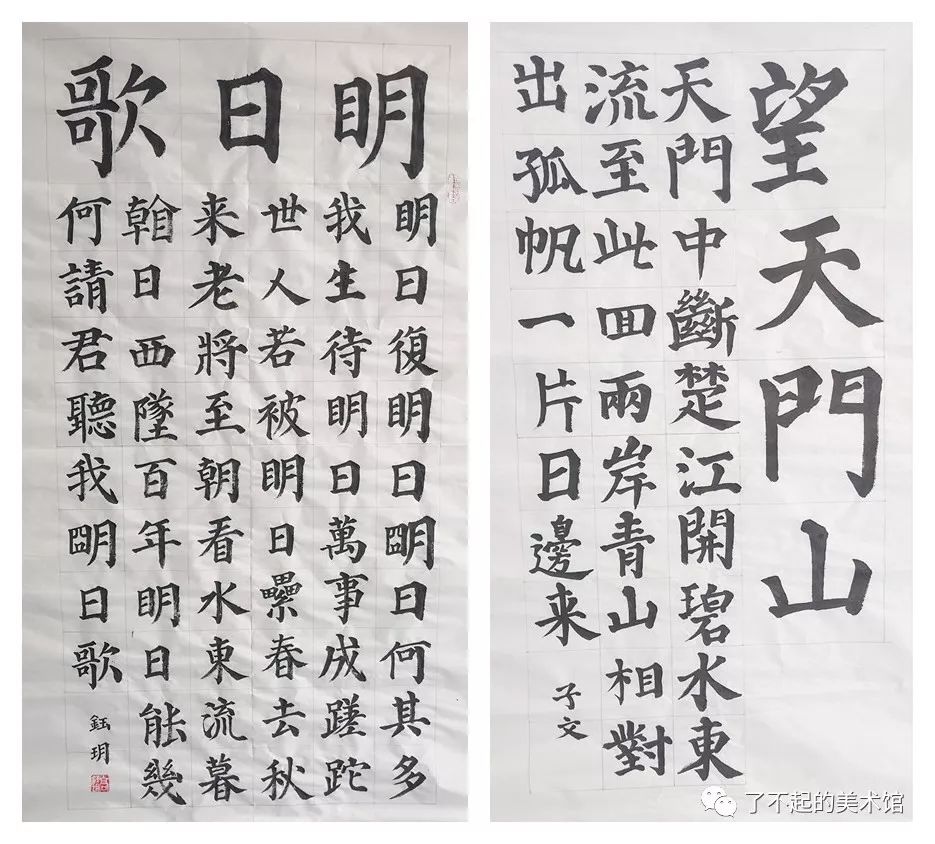 明日歌
明日復明日朙日何其多
我生待明日萬事成蹉跎
世人若被明日纍春去秋
来老將至朝看水東流暮
日西墜百年明日能幾
何請君聽我朙日歌
鈺玥
望天門山
天門中斷楚江開碧水東
流至此囬兩岸青山相對
出孤帆一片日邊来
子文
了不起的美术馆